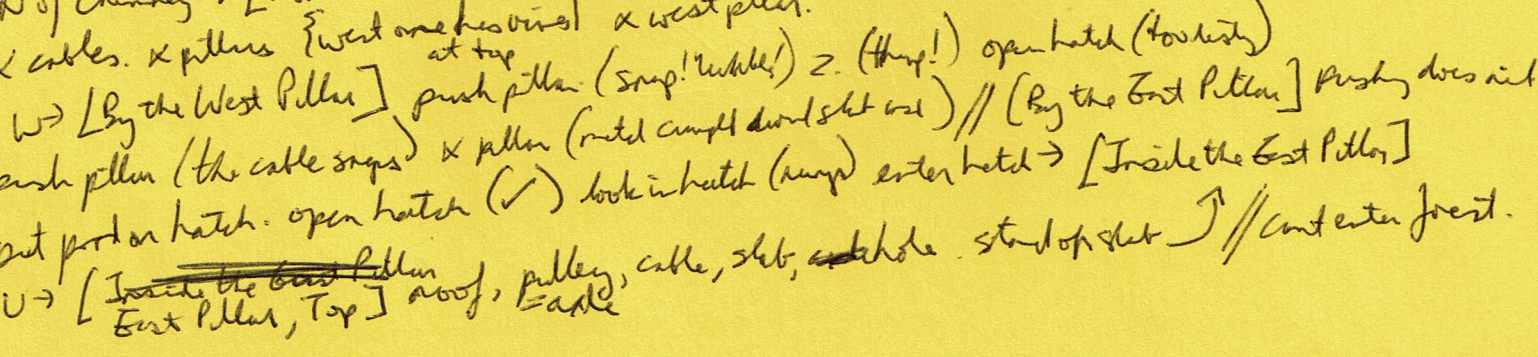 N of chimney
x cables. x pillars {west one has vines} x west pillar.
at top
W→ [By the West Pillar] push pillar. (snap! rubble!) z. (thump!) open hatch (too rusty)
push pillar (the cable snaps) x pillar (metal // [By the East Pillar] pushing does not
put pord on hatch. open hatch (✓) look in hatch (rungs) enter hatch → [Inside the East Pillar]
U→ [Inside the East Pillar roof, pulley, cable, slab, hole. stand on slab ⤴ // cant enter forest.
East Pillar, Top] =axle